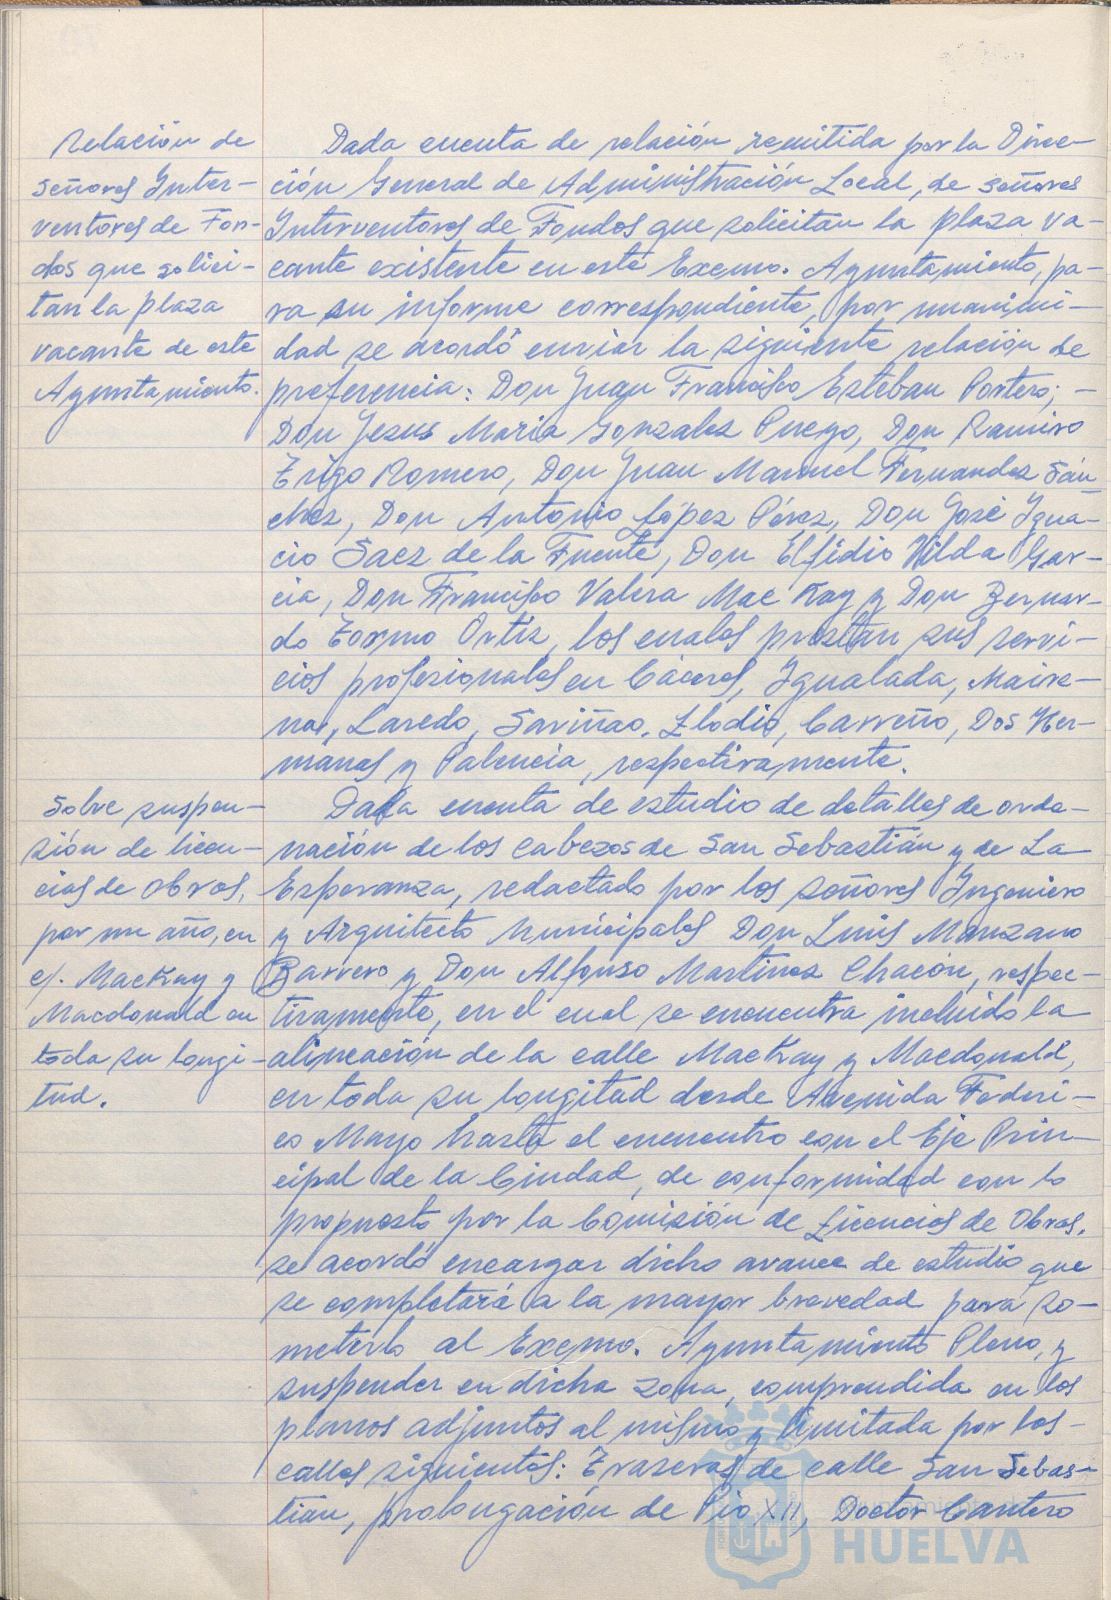 Relación de
señores Inter-
ventores de Fon-
dos que solici-
tan la plaza
vacante de este
Ayuntamiento.
Dada cuenta de relación remitida por la Direc-
ción General de Administración Local, de señores
Interventores de Fondos que solicitan la plaza va-
cante existente en este Excmo. Ayuntamiento, pa-
ra su informe correspondiente, por unanimi-
dad se acordó enviar la siguiente relación de
preferencia: Don Juan Francisco Esteban Portero; -
Don Jesus Maria Gonzalez Pueyo, Don Ramiro
Trigo Romero, Don Juan Manuel Fernandez Sán
chez, Don Antonio López Pérez, Don José Igna-
cio Saez de la Fuente, Don Elfidio Vilda Gar-
cia, Don Francisco Valera Mac Kay y Don Bernar-
do Tormo Ortiz, los cuales prestan sus servi-
cios profesionales en Cáceres, Igualada, Maire-
na, Laredo, Saviñao, Llodio, Carreño, Dos Her-
manas y Palencia, respectivamente.
Sobre suspen-
sión de licen-
cias de obras,
por un año, en
c/. MacKay y
Macdonald en
toda su longi-
tud.
Dada cuenta de estudio de detalles de orde-
nación de los cabezos de San Sebastián y de La
Esperanza, redactado por los señores Ingeniero
y Arquitecto Municipales Don Luis Manzano
Barrero y Don Alfonso Martinez Chacón, respec-
tivamente, en el cual se encuentra incluido la
alineación de la calle MacKay y Macdonald,
en toda su longitad desde Avenida Federi-
co Mayo hasta el encuentro con el Eje Prin-
cipal de la Ciudad, de conformidad con lo
propuesto por la Comisión de Licencias de Obras,
se acordó encargar dicho avance de estudio que
se completará a la mayor brevedad para so-
meterlo al Excmo. Ayuntamiento Pleno, y
suspender en dicha zona, comprendida en los
planos adjuntos al mismo y limitada por los-
calles siguientes: Traseras de calle San Sebas-
tian, prolongación de Pio XII, Doctor Cantero
Ayuntamiento de
HUELVA